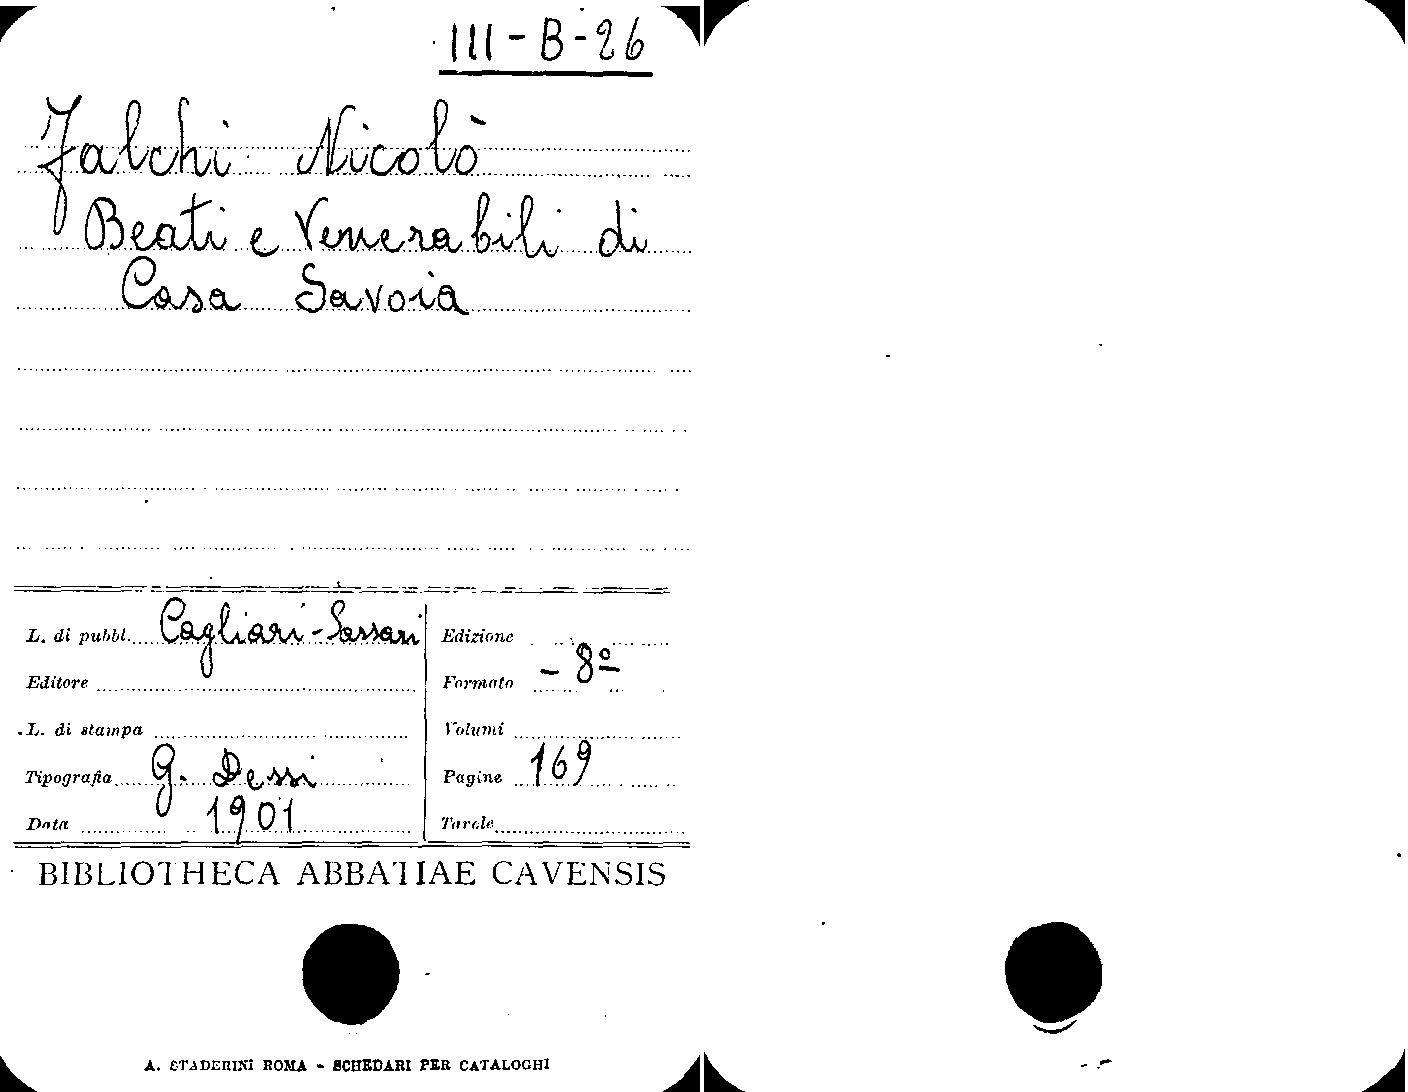 III - B - 26
Falchi Nicolò
Beati e Venerabili di
Casa Savoia
L. di pubbl. Cagliari - Sassari
Editore
L. di stampa
Tipografia G. Dessi
Data 1901
Edizione
Formato - 8º
Volumi
Pagine 169
Tavole
BIBLIOTHECA ABBATIAE CAVENSIS
A. STADERINI ROMA - SCHEDARI PER CATALOGHI